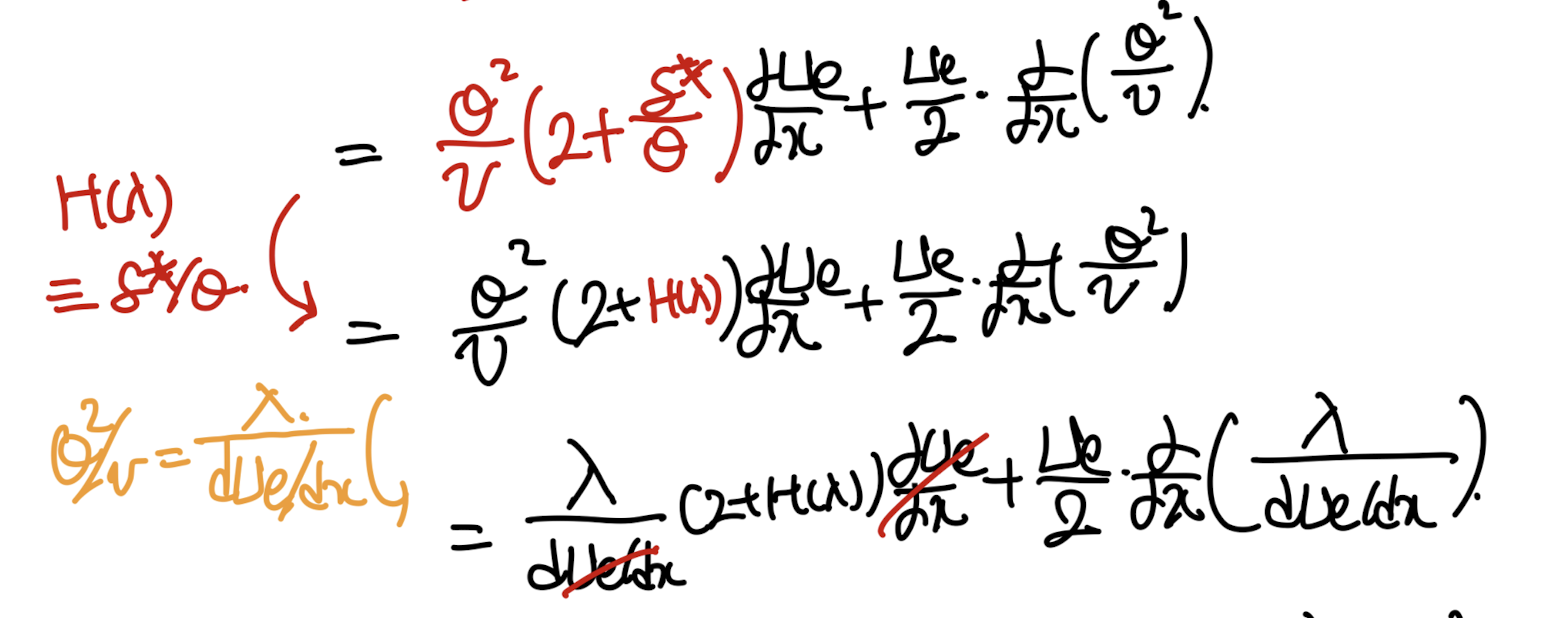 = θ²/ν (2+ δ*/θ) dUe/dx + Ue/2 · d/dx (θ²/ν).
H(λ)
= δ*/θ.
= θ²/ν (2+H(λ)) dUe/dx + Ue/2 · d/dx (θ²/ν)
θ²/ν = λ/(dUe/dx)
= λ/(dUe/dx) (2+H(λ)) dUe/dx + Ue/2 · d/dx (λ/(dUe/dx)).